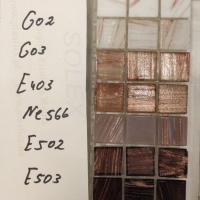 G02
G03
E403
Ne566
E502
E503